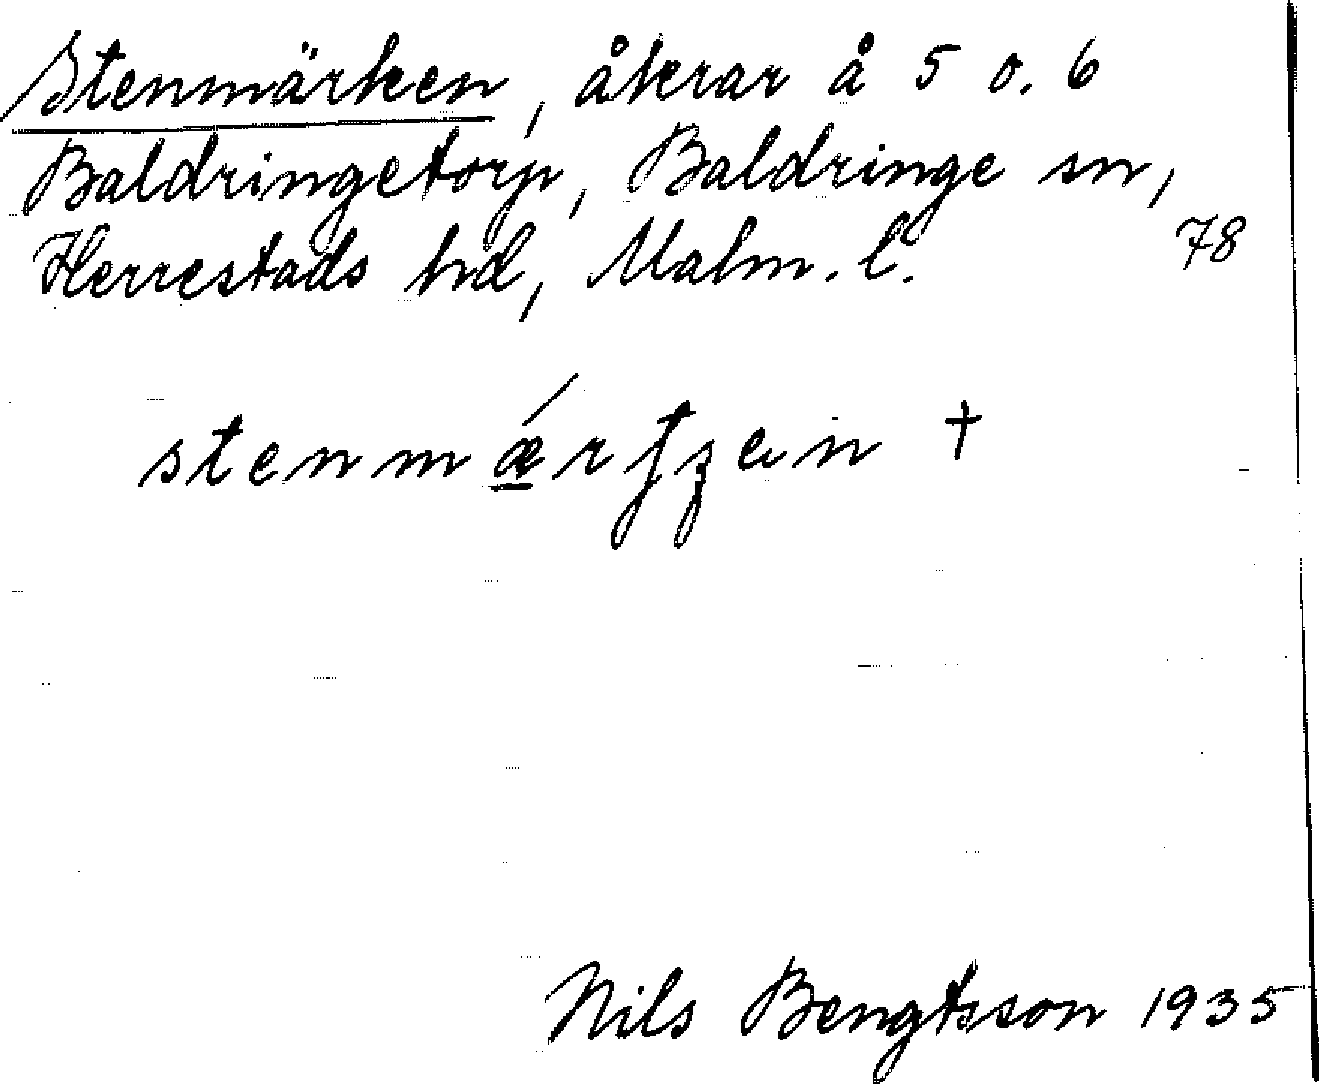 Stenmärken, åkrar å 5 o. 6
Baldringetorp, Baldringe sn,
Herrestads hd, Malm. l. 78
†
Nils Bengtsson 1935